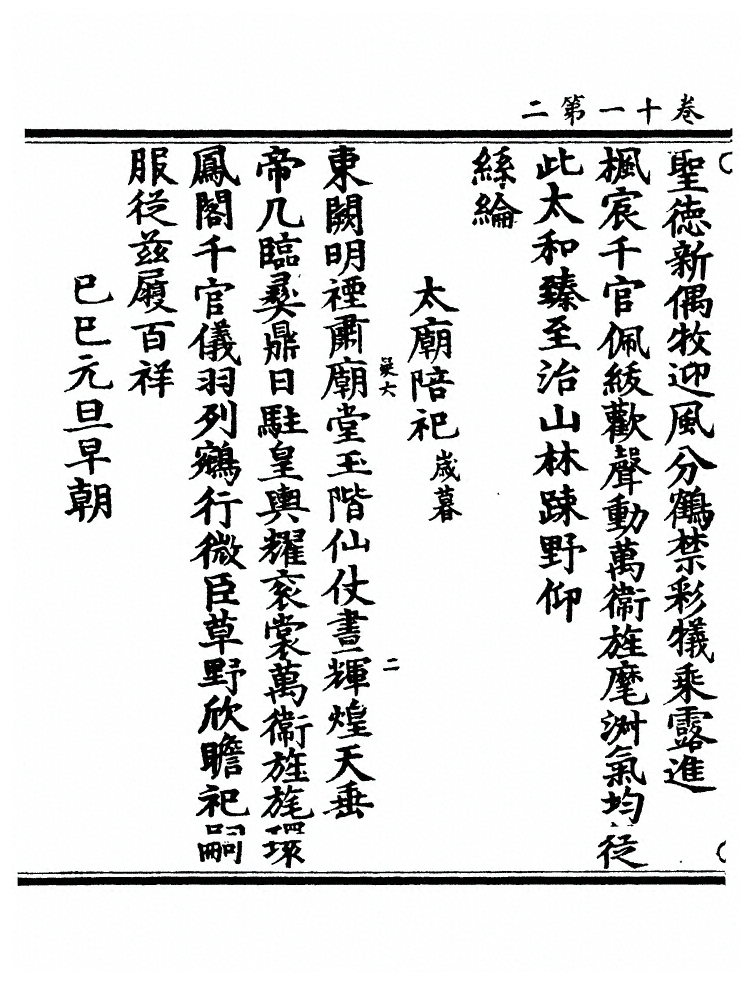 卷十一第二
聖德新偶牧迎風分鶴禁彩犧乘露進
楓宸千官佩緌歡聲動萬衛旌麾淑氣均從
此太和臻至治山林踈野仰
絲綸
太廟陪祀歲暮
東闕明禋肅廟堂玉階仙仗晝輝煌天垂
帝几臨彛鼎日駐皇輿耀衮裳萬衛旌旄環
鳳閣千官儀羽列鵷行微臣草野欣瞻祀嗣
服從兹履百祥
己巳元旦早朝
癸六
二